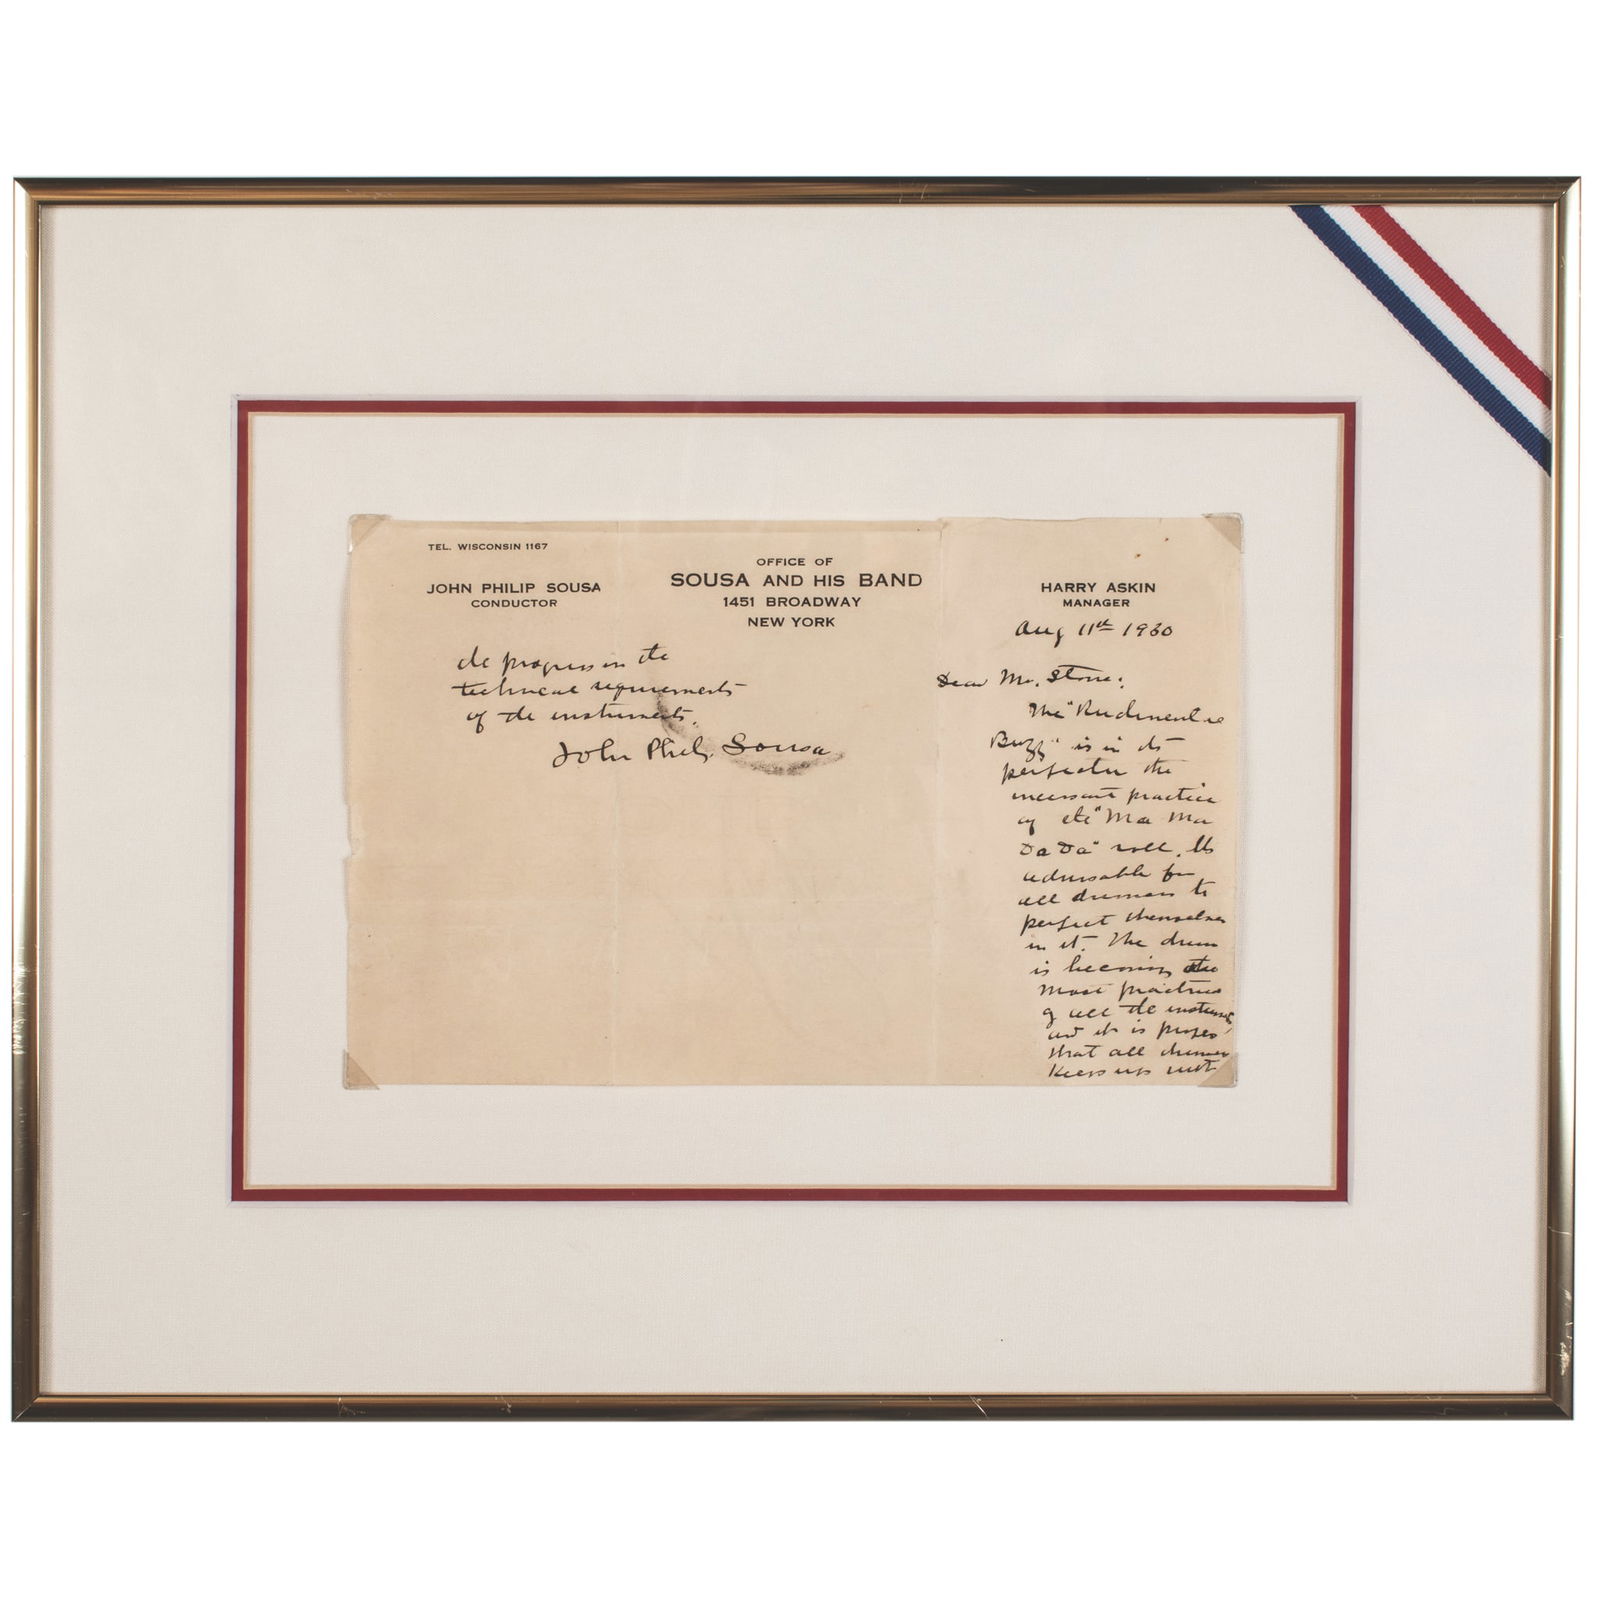 TEL. WISCONSIN 1167
JOHN PHILIP SOUSA
CONDUCTOR
OFFICE OF
SOUSA AND HIS BAND
1451 BROADWAY
NEW YORK
HARRY ASKIN
MANAGER
Aug 11th 1930
Dear Mr. Stone:
The "Rudimental
Buzz" is in its
perfection the
incessant practice
of the "Ma Ma
Da Da" roll. Its
advisable for
all drummers to
perfect themselves
in it. The drum
is becoming the
most
of all the instruments
and it is proper
that all drummers
keeps up with
the progress in the
technical requirements
of the instruments.
John Philip Sousa